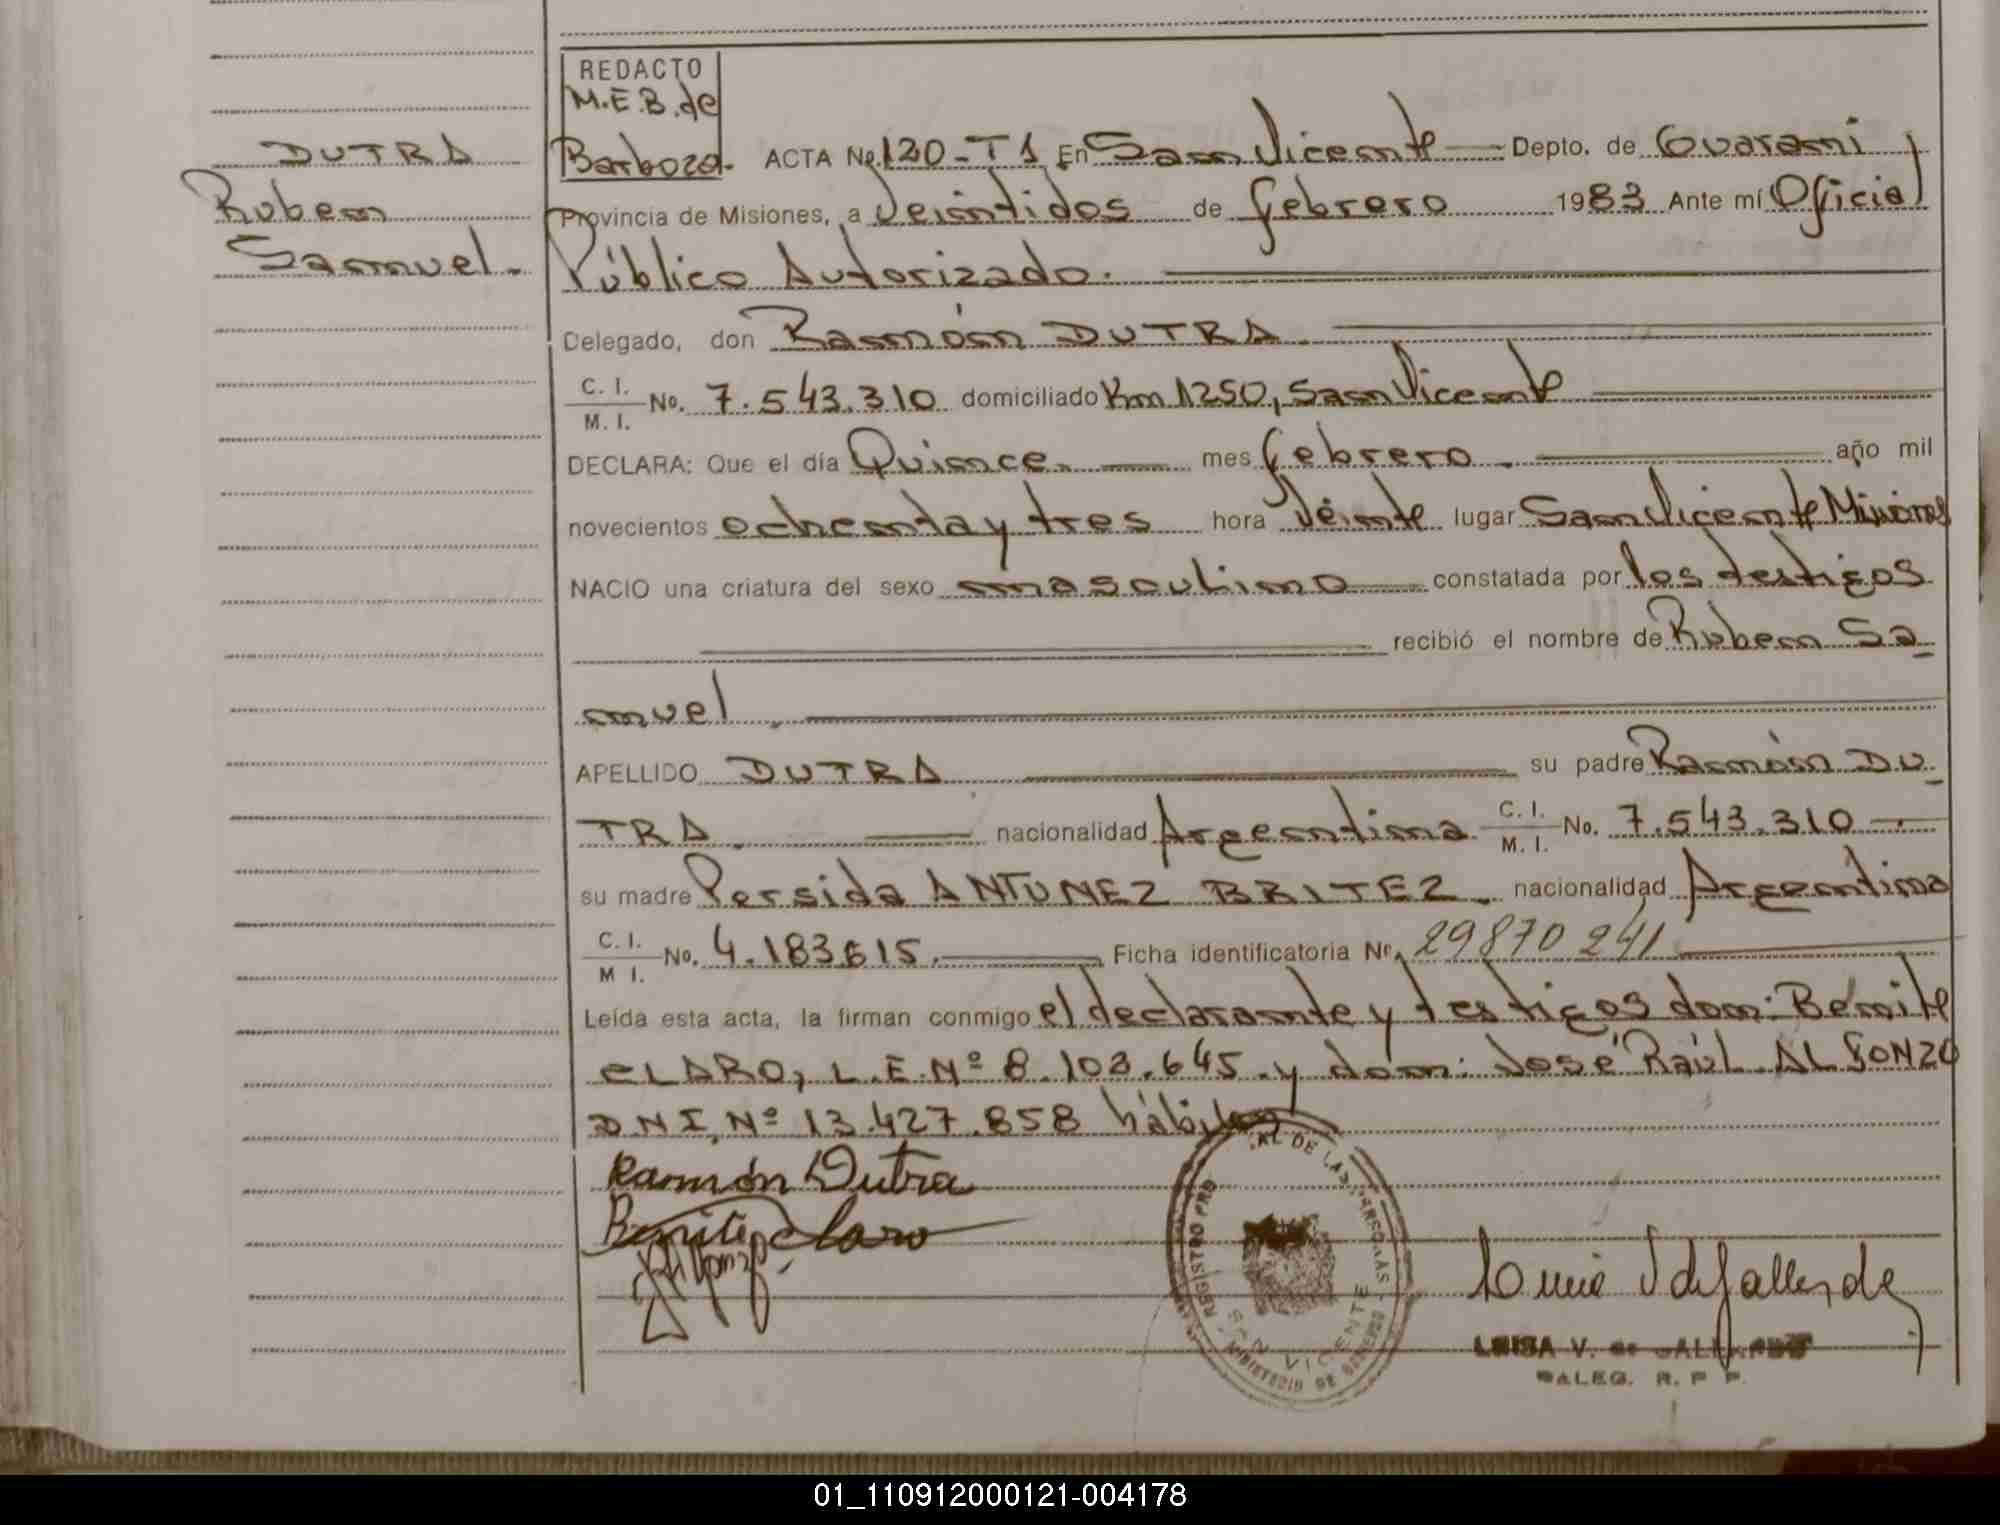 REDACTO
M.E.B. de
Barboza.
DUTRA
Ruben
Samuel.
ACTA No. 120-T1 En San Vicente Depto. de Guarani
Provincia de Misiones, a Veintidos de febrero 1983 Ante mí Oficial
Público Autorizado.
Delegado, don Ramón DUTRA
C. I.
M. I. No. 7.543.310 domiciliado Km 1250, San Vicente
DECLARA: Que el día Quince. mes febrero. año mil
novecientos ochenta y tres hora Veinte lugar San Vicente Misiones
NACIO una criatura del sexo masculino constatada por los testigos
recibió el nombre de Ruben Sa
muel.
APELLIDO DUTRA su padre Ramón DU
TRA. nacionalidad Argentina C. I.
M. I. No. 7.543.310
su madre Persida ANTUNEZ BRITEZ. nacionalidad Argentina
C. I.
M I. No. 4.183.615. Ficha identificatoria No. 29870241
Leída esta acta, la firman conmigo el declarante y testigos don: Benite
CLARO, L.E.Nº 8.103.645. y don: José Raúl ALFONZO
D.N.I. Nº 13.427.858 hábiles
Ramón Dutra
Benite Claro
Alfonzo
AL DE LAS PERSONAS
REGISTRO PRO
SAN VICENTE
MINISTERIO DE GOBIERNO
LUISA V. de GALLARDO
DALEG. R. P P.
01_110912000121-004178